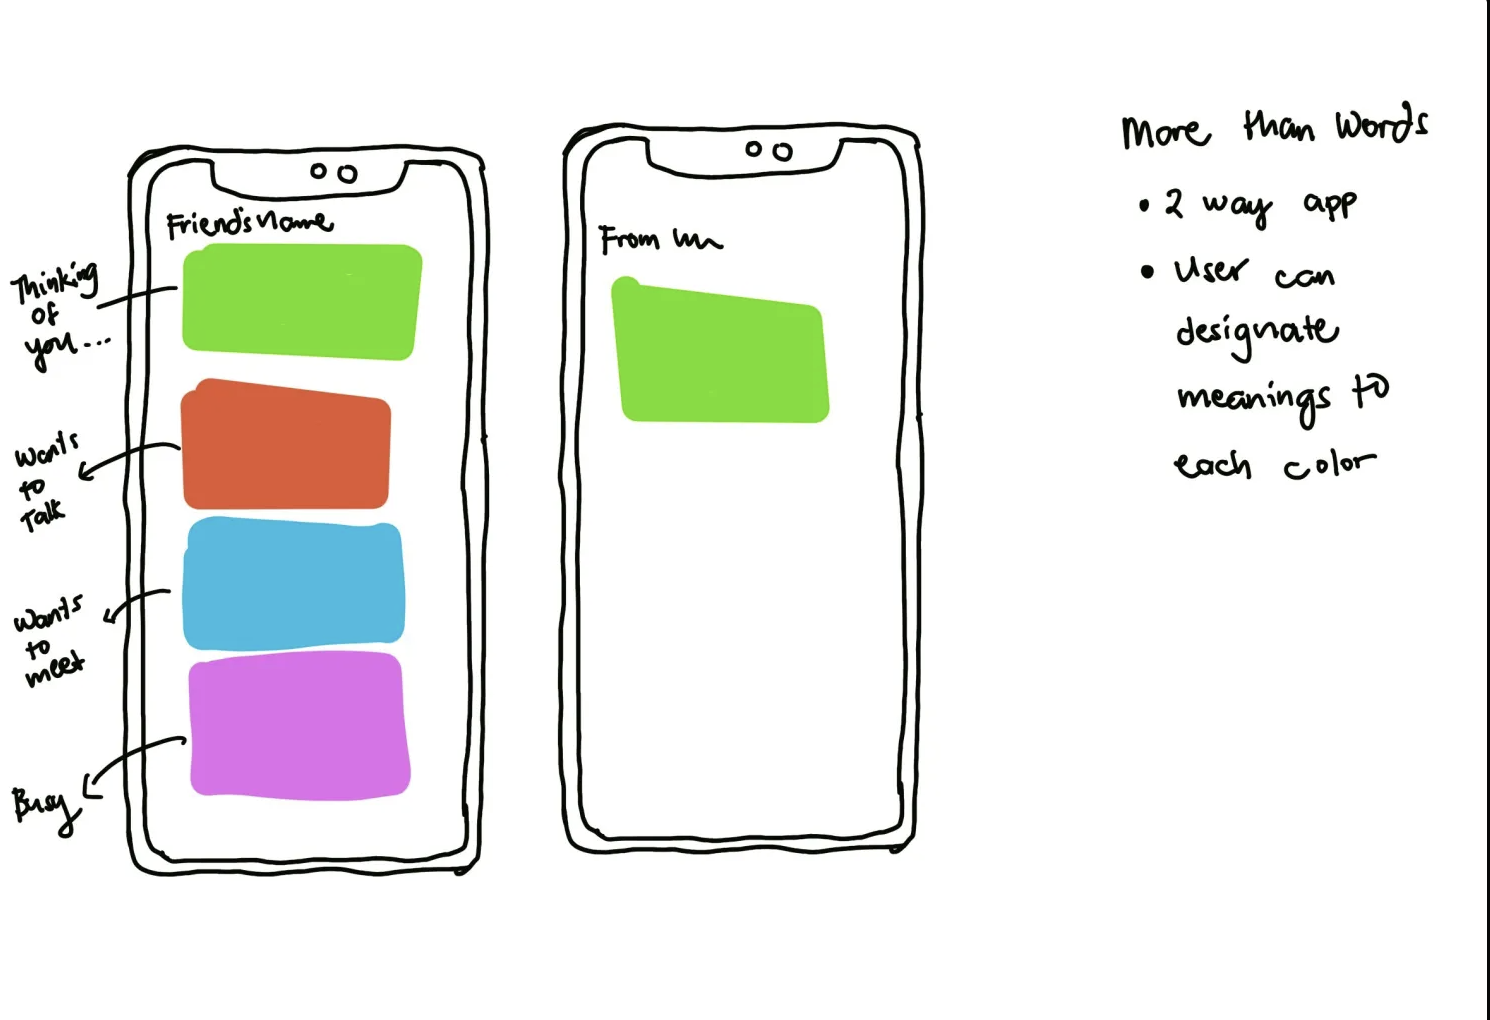 Friend's Name
Thinking
of
you...
Wants
to
Talk
Wants
to
meet
Busy
From
More than Words
• 2 way app
• User can
designate
meanings to
each color